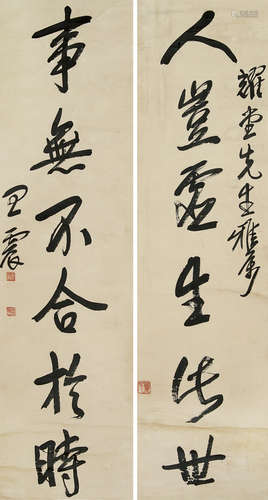 人豈虛生作世
耀堂先生雅属
事無不合於時
王震